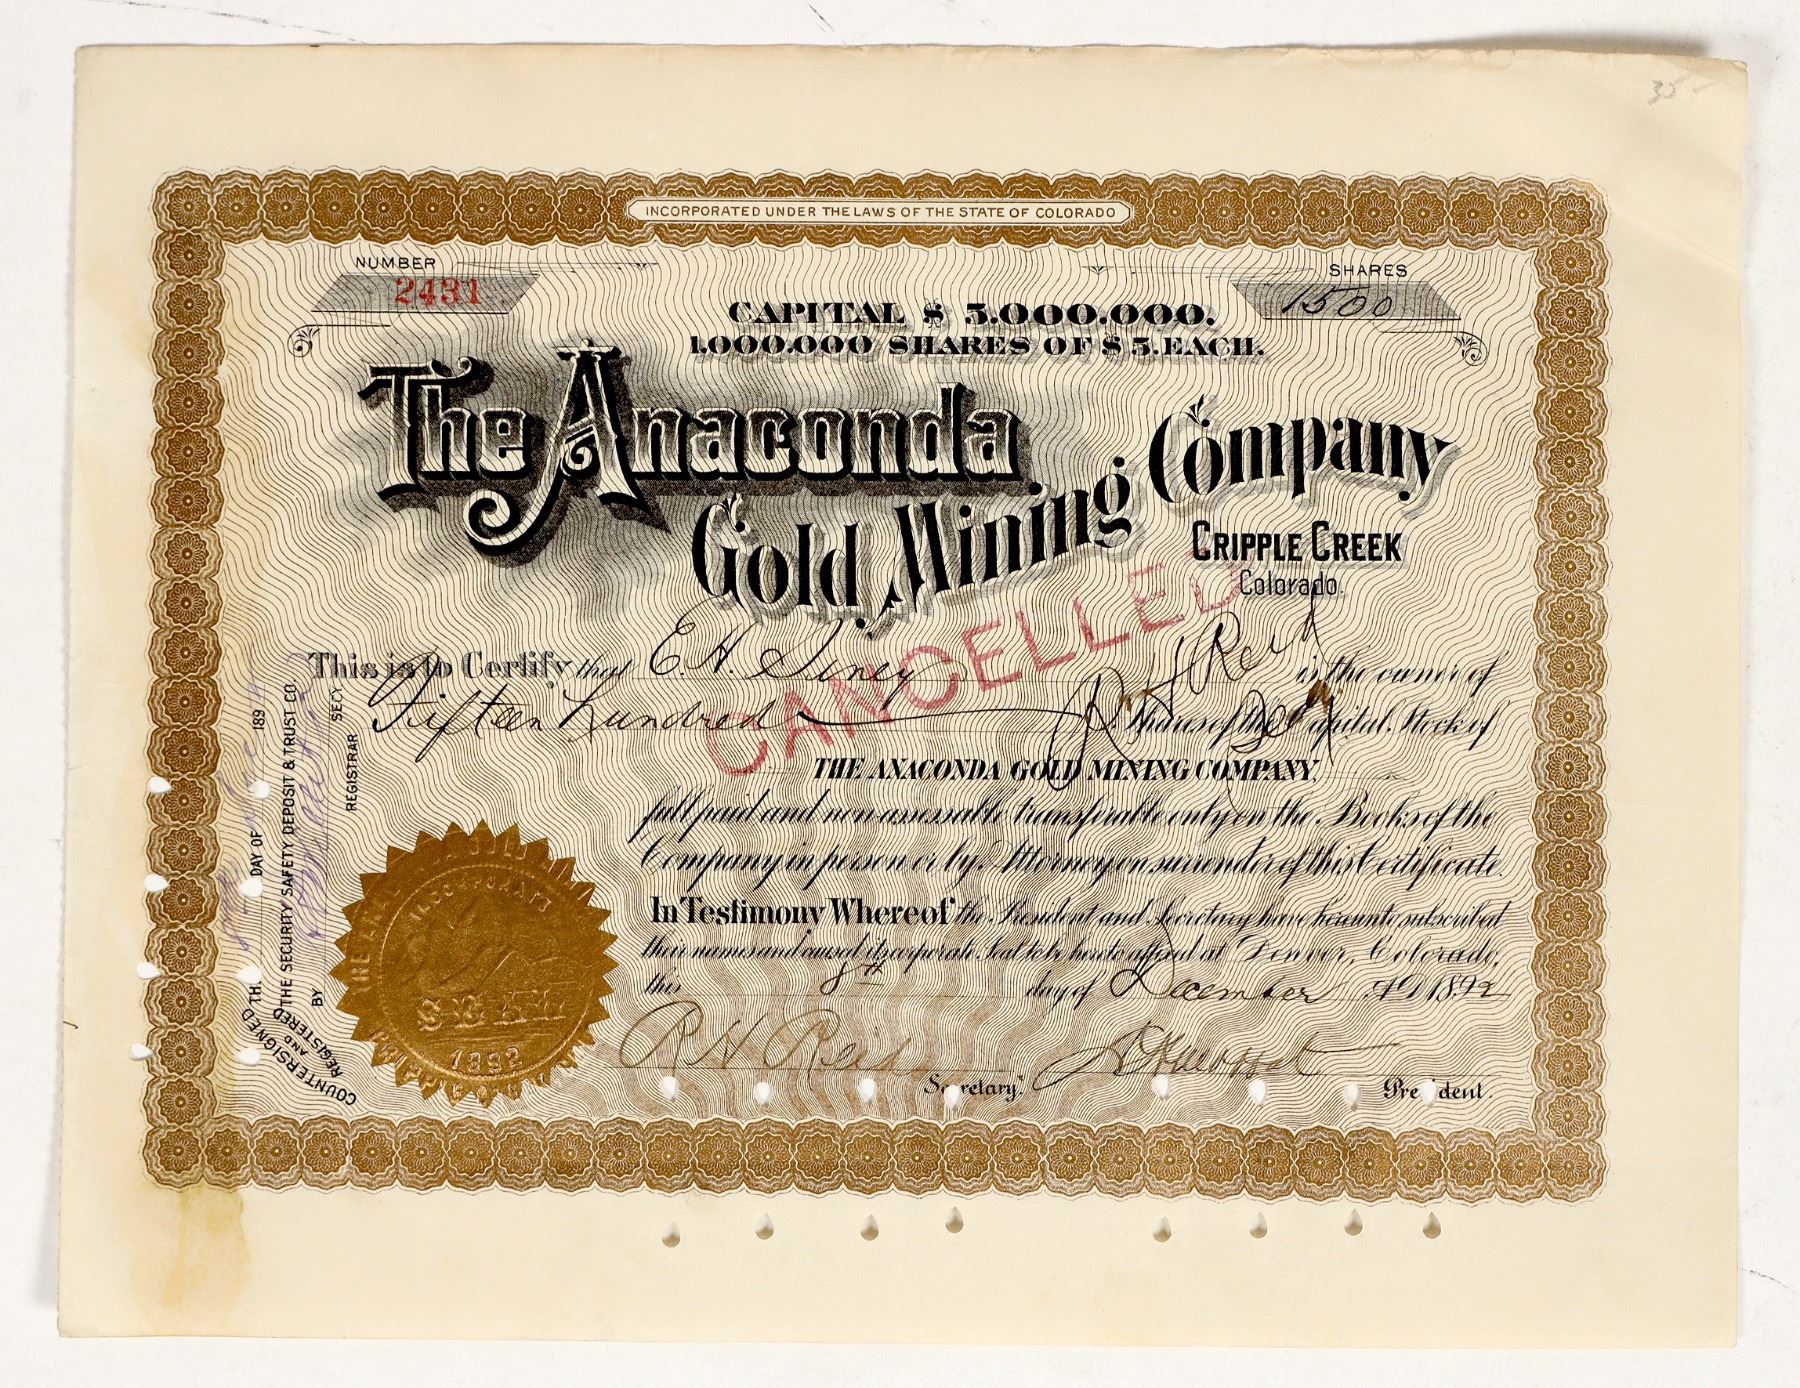 35-
INCORPORATED UNDER THE LAWS OF THE STATE OF COLORADO
NUMBER
2431
SHARES
1500
CAPITAL $ 5.000.000.
1.000.000 SHARES OF $ 5. EACH.
The Anaconda
Gold Mining Company
CRIPPLE CREEK
Colorado.
This is to Certify that E. H. is the owner of
Fifteen hundred Shares of the Capital Stock of
R H Reid
Secy
CANCELLED
THE ANACONDA GOLD MINING COMPANY,
full paid and non assessable transferable only on the Books of the
Company in person or by Attorney on surrender of this Certificate.
In Testimony Whereof the President and Secretary have hereunto subscribed
their names and caused its corporate Seal to be hereto affixed at Denver, Colorado,
this 8th day of December A.D. 1892
R H Reid Secretary.
President.
COUNTERSIGNED TH. DAY OF 189
AND
REGISTERED THE SECURITY SAFETY DEPOSIT & TRUST CO.
BY SECY
REGISTRAR
INCORPORATED
SEAL
1892